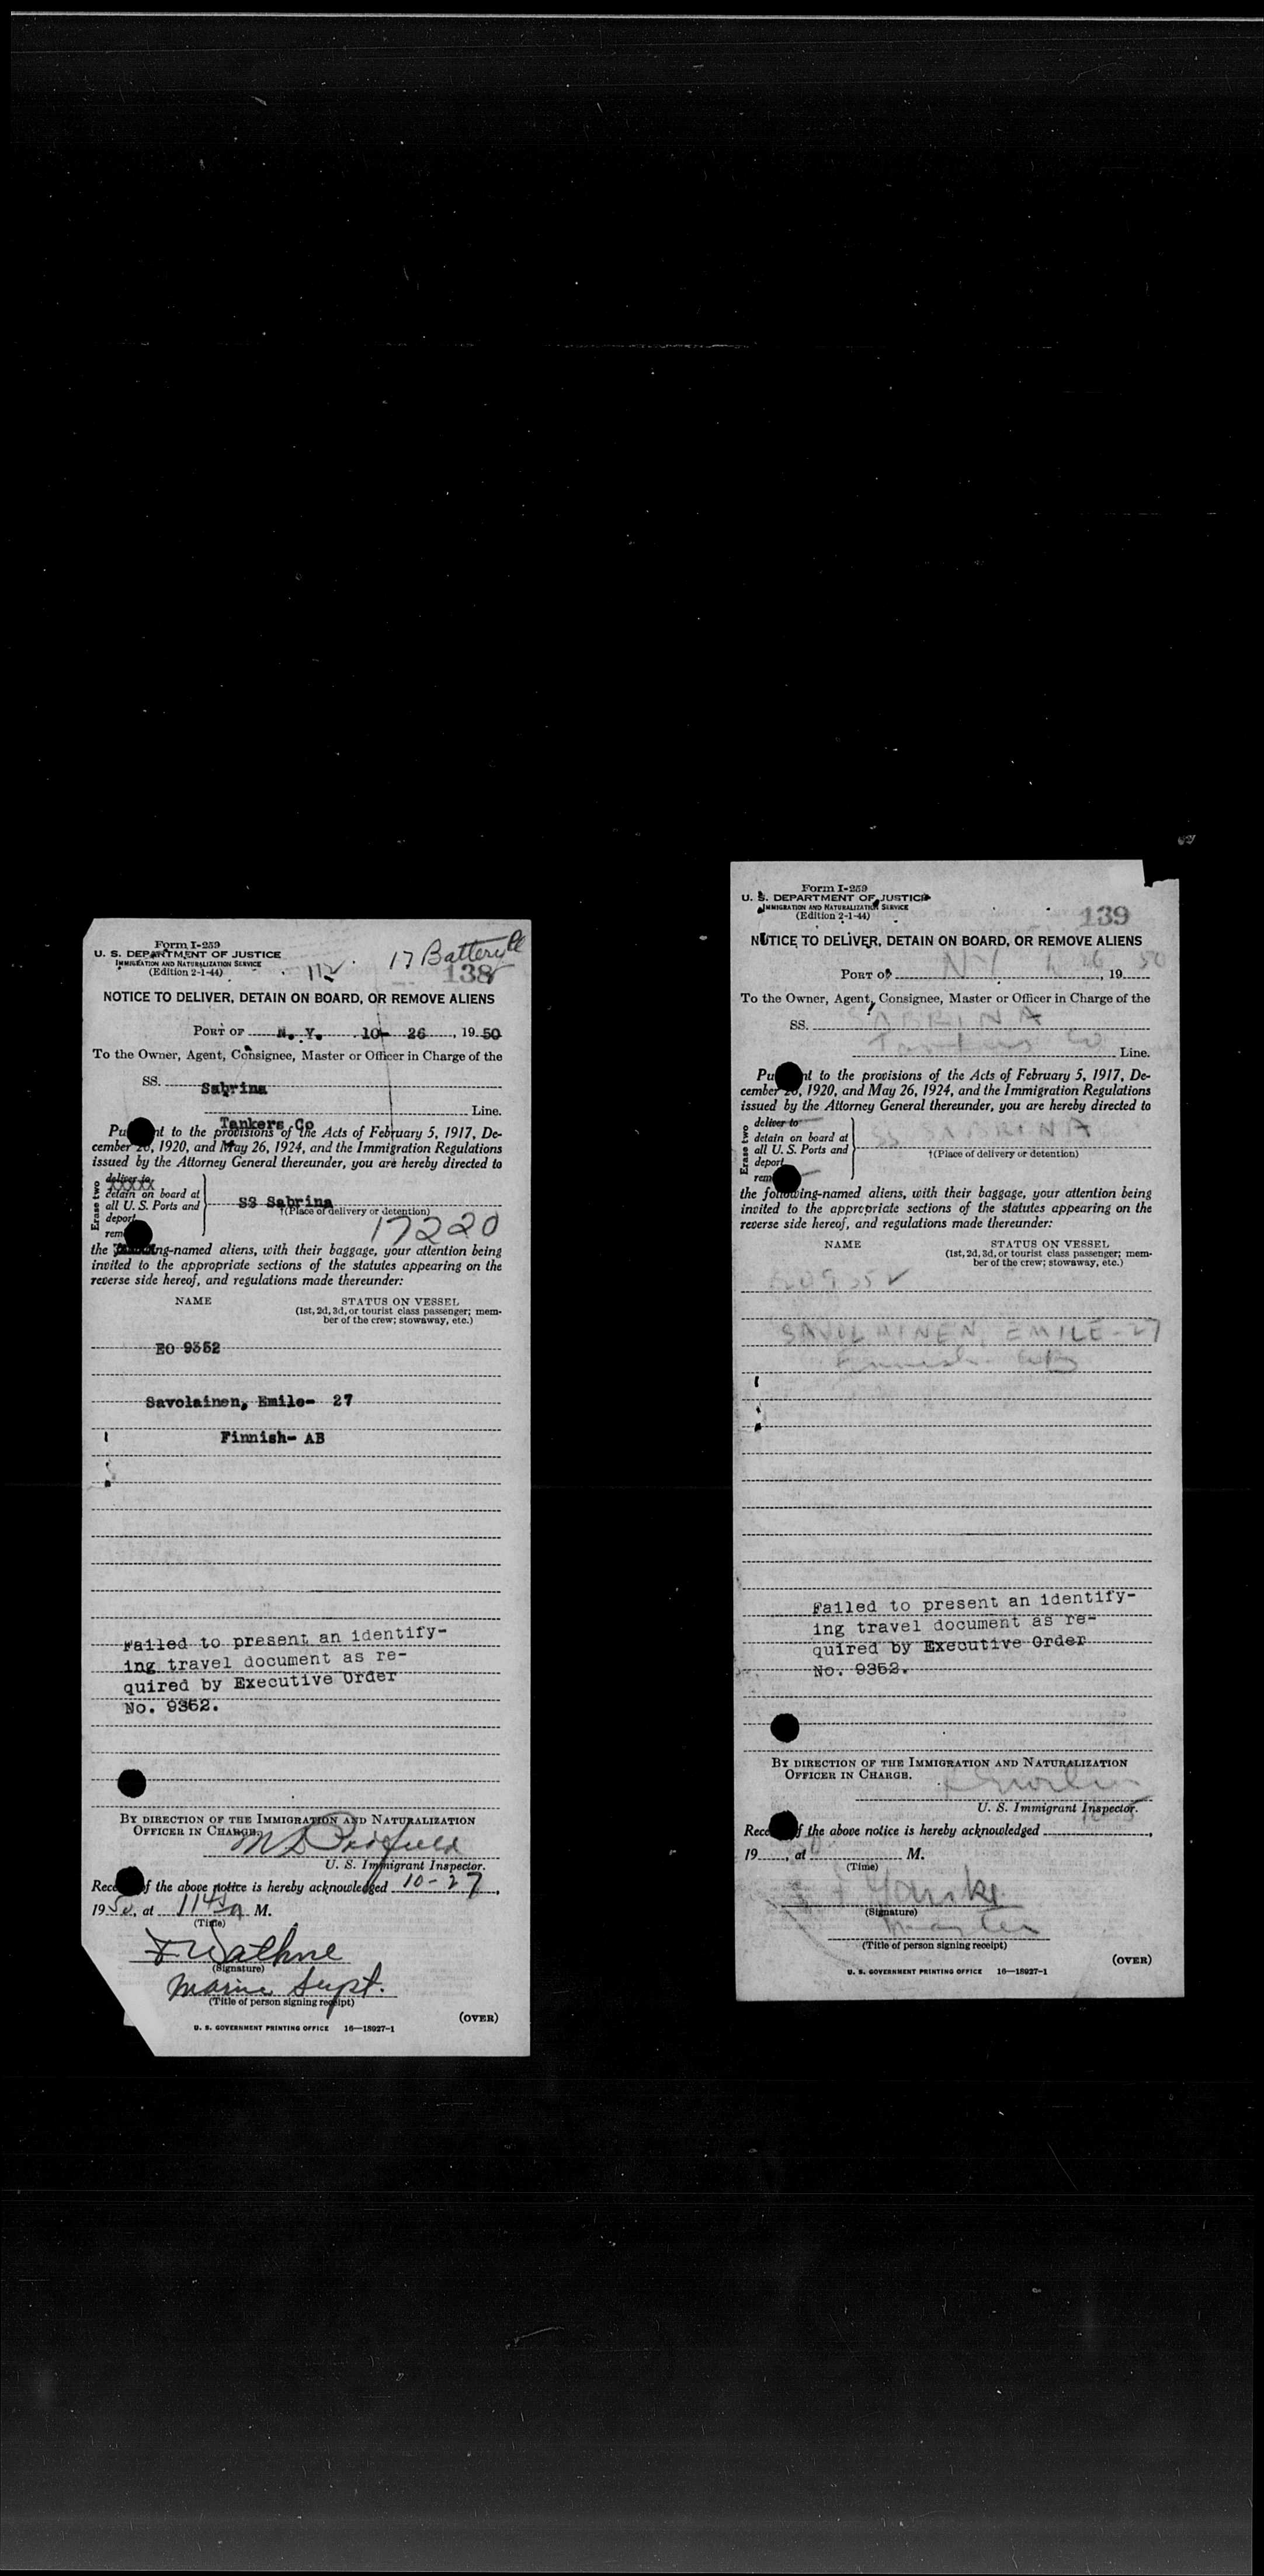 Form I-259
U. S. DEPARTMENT OF JUSTICE
IMMIGRATION AND NATURALIZATION SERVICE
(Edition 2-1-44)
112
17 Battery Pl
138
NOTICE TO DELIVER, DETAIN ON BOARD, OR REMOVE ALIENS
PORT OF N. Y. 10- 26, 19 50
To the Owner, Agent, Consignee, Master or Officer in Charge of the
SS. Sabrina
Line.
Tankers Co
Pu nt to the provisions of the Acts of February 5, 1917, De-
cember 20, 1920, and May 26, 1924, and the Immigration Regulations
issued by the Attorney General thereunder, you are hereby directed to
Erase two
deliver to
detain on board at
all U. S. Ports and
deport
rem
SS Sabrina
†(Place of delivery or detention)
17220
the following-named aliens, with their baggage, your attention being
invited to the appropriate sections of the statutes appearing on the
reverse side hereof, and regulations made thereunder:
NAME STATUS ON VESSEL
(1st, 2d, 3d, or tourist class passenger; mem-
ber of the crew; stowaway, etc.)
EO 9352
Savolainen, Emile- 27
Finnish- AB
Failed to present an identify-
ing travel document as re-
quired by Executive Order
No. 9352.
BY DIRECTION OF THE IMMIGRATION AND NATURALIZATION
OFFICER IN CHARGE.
U. S. Immigrant Inspector.
Rece f the above notice is hereby acknowledged 10-27,
19 50, at M.
(Time)
F Wathne
(Signature)
Marine Supt.
(Title of person signing receipt)
(OVER)
U. S. GOVERNMENT PRINTING OFFICE 16—18927-1
Form I-259
U. S. DEPARTMENT OF JUSTICE
IMMIGRATION AND NATURALIZATION SERVICE
(Edition 2-1-44)
139
NOTICE TO DELIVER, DETAIN ON BOARD, OR REMOVE ALIENS
PORT OF NY 26, 19 50
To the Owner, Agent, Consignee, Master or Officer in Charge of the
SS. SABRINA
Tankers Co Line.
Pu nt to the provisions of the Acts of February 5, 1917, De-
cember 20, 1920, and May 26, 1924, and the Immigration Regulations
issued by the Attorney General thereunder, you are hereby directed to
Erase two
deliver to
detain on board at
all U. S. Ports and
deport
rem
SS SABRINA
†(Place of delivery or detention)
the following-named aliens, with their baggage, your attention being
invited to the appropriate sections of the statutes appearing on the
reverse side hereof, and regulations made thereunder:
NAME STATUS ON VESSEL
(1st, 2d, 3d, or tourist class passenger; mem-
ber of the crew; stowaway, etc.)
EO 9352
SAVOLAINEN, EMILE-27
Finnish AB
Failed to present an identify-
ing travel document as re-
quired by Executive Order
No. 9352.
BY DIRECTION OF THE IMMIGRATION AND NATURALIZATION
OFFICER IN CHARGE.
U. S. Immigrant Inspector.
Rece f the above notice is hereby acknowledged ,
19 , at M.
(Time)
(Signature)
Master
(Title of person signing receipt)
(OVER)
U. S. GOVERNMENT PRINTING OFFICE 16—18927-1